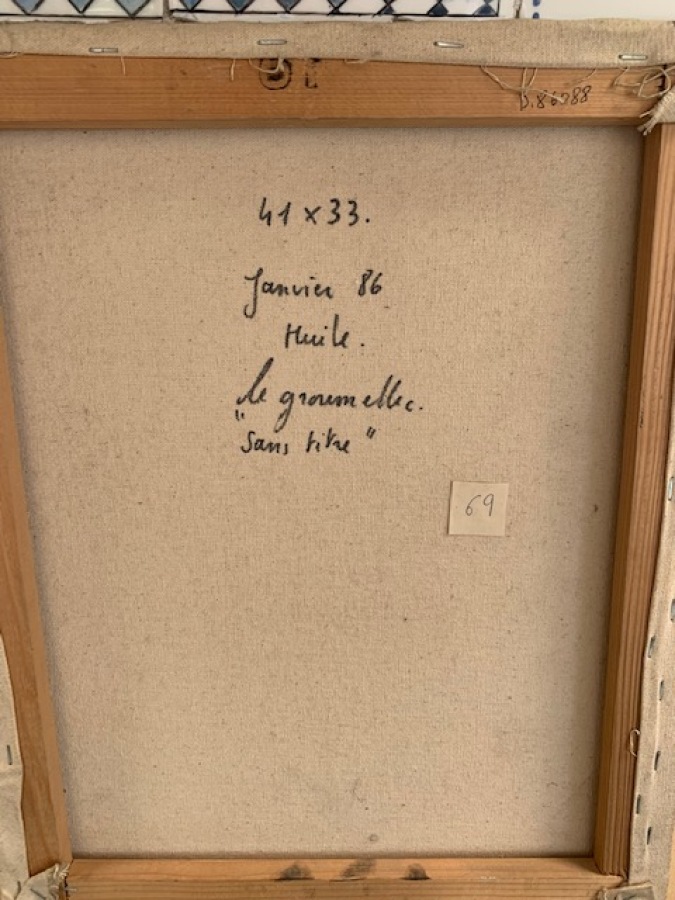 41 x 33.
Janvier 86
Huile.
le groumellec.
"Sans titre"
69